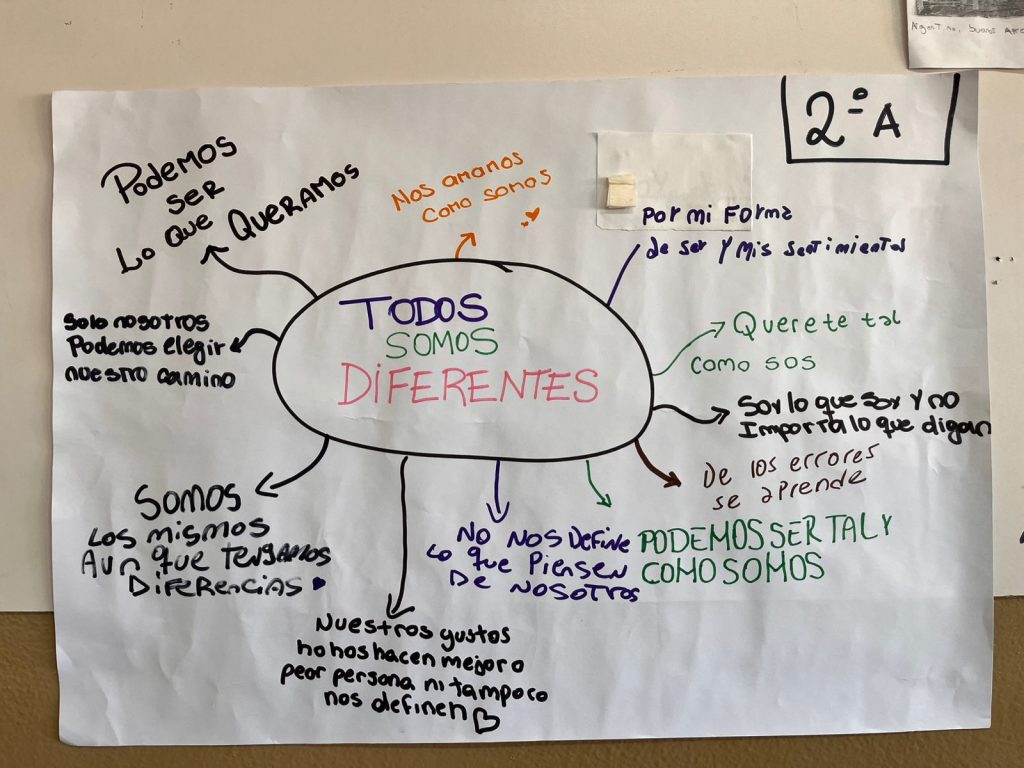 Argentina, Buenos Aire
2º A
Podemos
ser
Lo que QUERAMOS
Nos amamos
como somos
Por mi Forma
de ser y Mis sentimientos
TODOS
SOMOS
DIFERENTES
Solo nosotros
Podemos elegir
nuestro camino
Querete tal
como sos
Soy lo que soy y no
Importa lo que digan
De los errores
se aprende
SOMOS
Los mismos
Aun que tengamos
DIFERENCIAS
NO NOS DEFINE
Lo que PIENSEN
DE NOSOTROS
PODEMOS SER TAL Y
COMO SOMOS
Nuestros gustos
no nos hacen mejor o
peor persona ni tampoco
nos definen